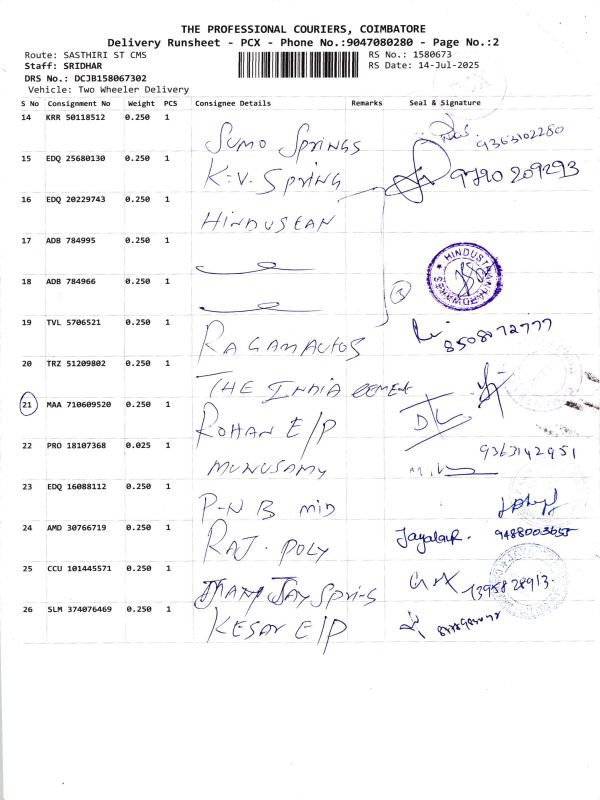 THE PROFESSIONAL COURIERS, COIMBATORE
Delivery Runsheet - PCX - Phone No.:9047080280 - Page No.:2
Route: SASTHIRI ST CMS RS No.: 1580673
Staff: SRIDHAR RS Date: 14-Jul-2025
DRS No.: DCJB158067302
Vehicle: Two Wheeler Delivery
S No Consignment No Weight PCS Consignee Details Remarks Seal & Signature
14 KRR 50118512 0.250 1 SUMO SPRINGS 9363102280
15 EDQ 25680130 0.250 1 K.V. SPRING 9790 209293
16 EDQ 20229743 0.250 1 HINDUSTAN
17 ADB 784995 0.250 1 HINDUSTAN HARDWARES
18 ADB 784966 0.250 1 3
19 TVL 5706521 0.250 1 RAGAM AUTOS 8508072777
20 TRZ 51209802 0.250 1 THE INDIA CEMENT
21 MAA 710609520 0.250 1 ROHAN E/P
22 PRO 18107368 0.025 1 MUNUSAMY 9363142951
23 EDQ 16088112 0.250 1 P-N B mid
24 AMD 30766719 0.250 1 RAJ. POLY 9488003655
25 CCU 101445571 0.250 1 JAY Springs
26 SLM 374076469 0.250 1 KESAV E/P